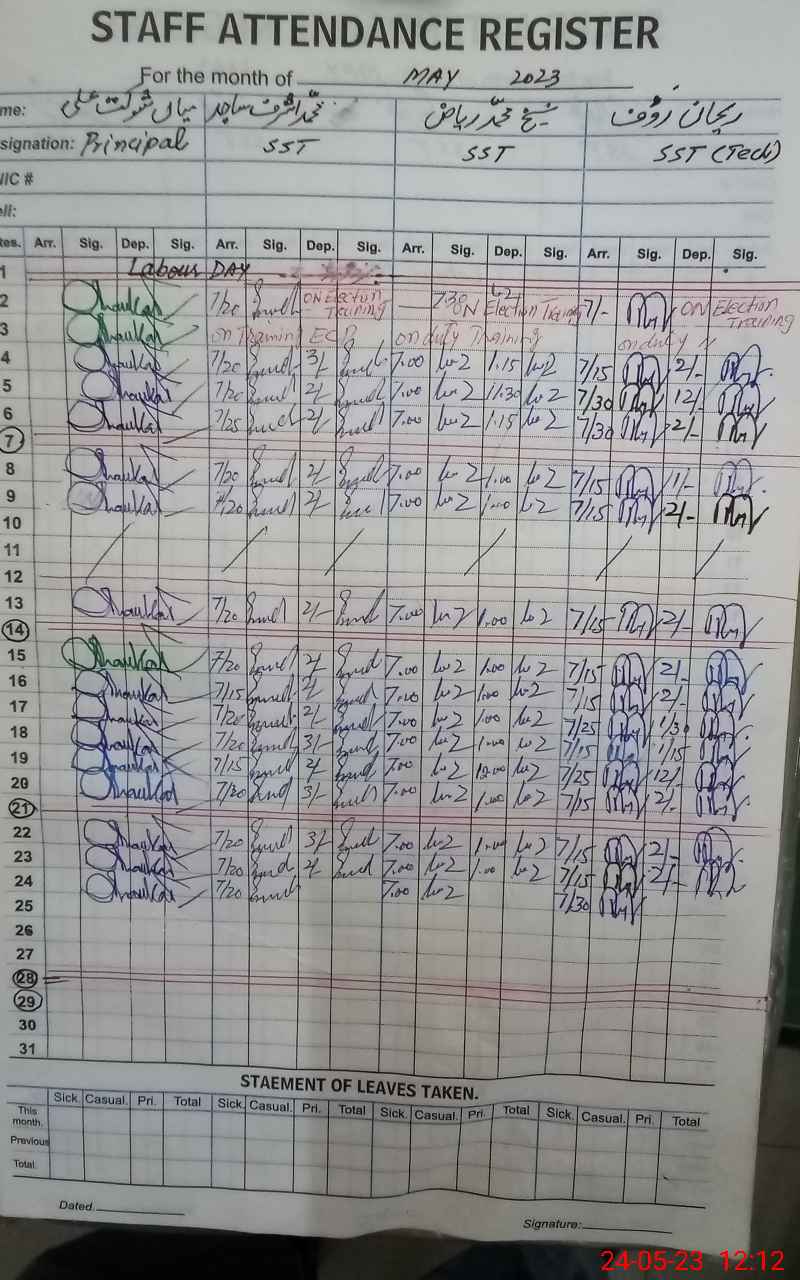 STAFF ATTENDANCE REGISTER
For the month of MAY 2023
me: میاں شوکت علی محمد اشرف ساجد شیخ محمد ریاض ریحان رؤف
signation: Principal SST SST SST (Tech)
NIC #
ell:
tes. Arr. Sig. Dep. Sig. Arr. Sig. Dep. Sig. Arr. Sig. Dep. Sig. Arr. Sig. Dep. Sig.
1 Labour DAY
2 Shaukat 7/20 ON Election Training 7.30 ON Election Training 7/- ON Election Training
3 Shaukat on Training ECP on duty Training on duty
4 Shaukat 7/20 3/- 7.00 1.15 7/15 2/-
5 Shaukat 7/20 2/- 7.00 11.30 7/30 12/-
6 Shaukat 7/25 2/- 7.00 1.15 7/30 2/-
7
8 Shaukat 7/20 2/- 7.00 1.00 7/15 1/-
9 Shaukat 7/20 2/- 7.00 1.00 7/15 2/-
10
11
12
13 Shaukat 7/20 2/- 7.00 1.00 7/15 2/-
14
15 Shaukat 7/20 2/- 7.00 1.00 7/15 2/-
16 Shaukat 7/15 2/- 7.00 1.00 7/15 2/-
17 Shaukat 7/20 2/- 7.00 1.00 7/25 1/30
18 Shaukat 7/20 3/- 7.00 1.00 7/15 1/15
19 Shaukat 7/15 2/- 7.00 12.00 7/25 12/-
20 Shaukat 7/20 3/- 7.00 1.00 7/15 2/-
21
22 Shaukat 7/20 3/- 7.00 1.00 7/15 2/-
23 Shaukat 7/20 2/- 7.00 1.00 7/15 2/-
24 Shaukat 7/20 7.00 7/30
25
26
27
28
29
30
31
STAEMENT OF LEAVES TAKEN.
Sick. Casual. Pri. Total Sick. Casual. Pri. Total Sick. Casual. Pri. Total Sick. Casual. Pri. Total
This month.
Previous
Total.
Dated.
Signature:
24-05-23 12:12